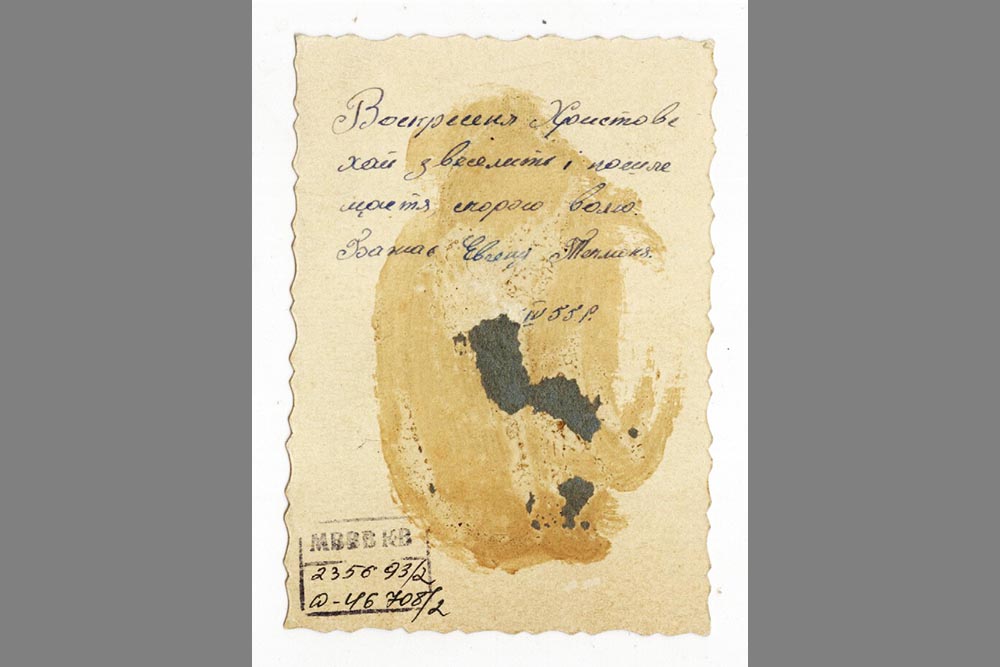 Воскресеня Христове
хай звеселить і пошле
щастя, скорою волю.
Бажає Євгенія
IV 55 р.
КВ
2356 93/2
Ф-46 708/2